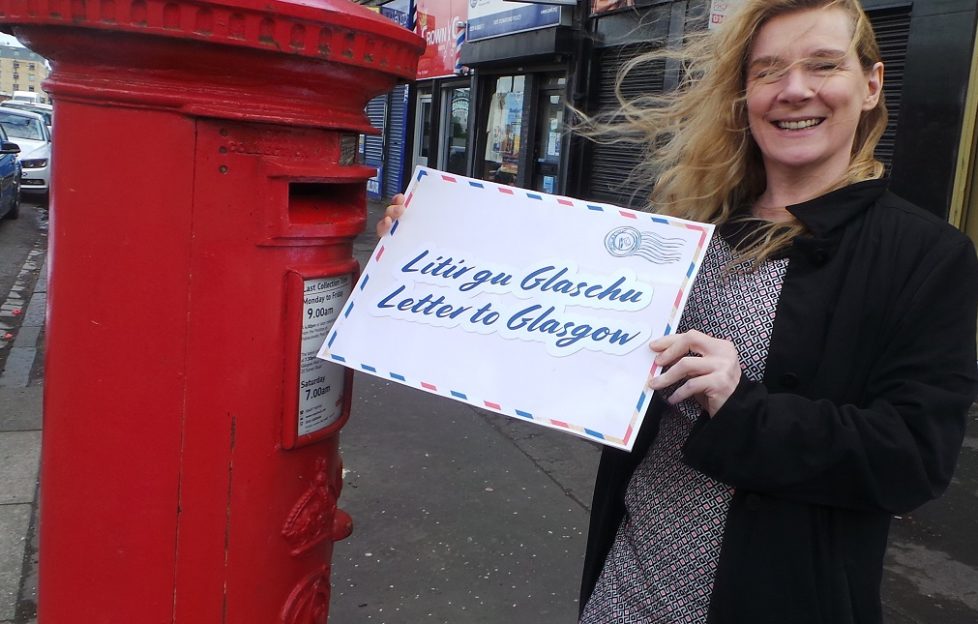 CROWN
Litir gu Glaschu
Letter to Glasgow
Last Collection
Monday to Friday
9.00am
Saturday
7.00am